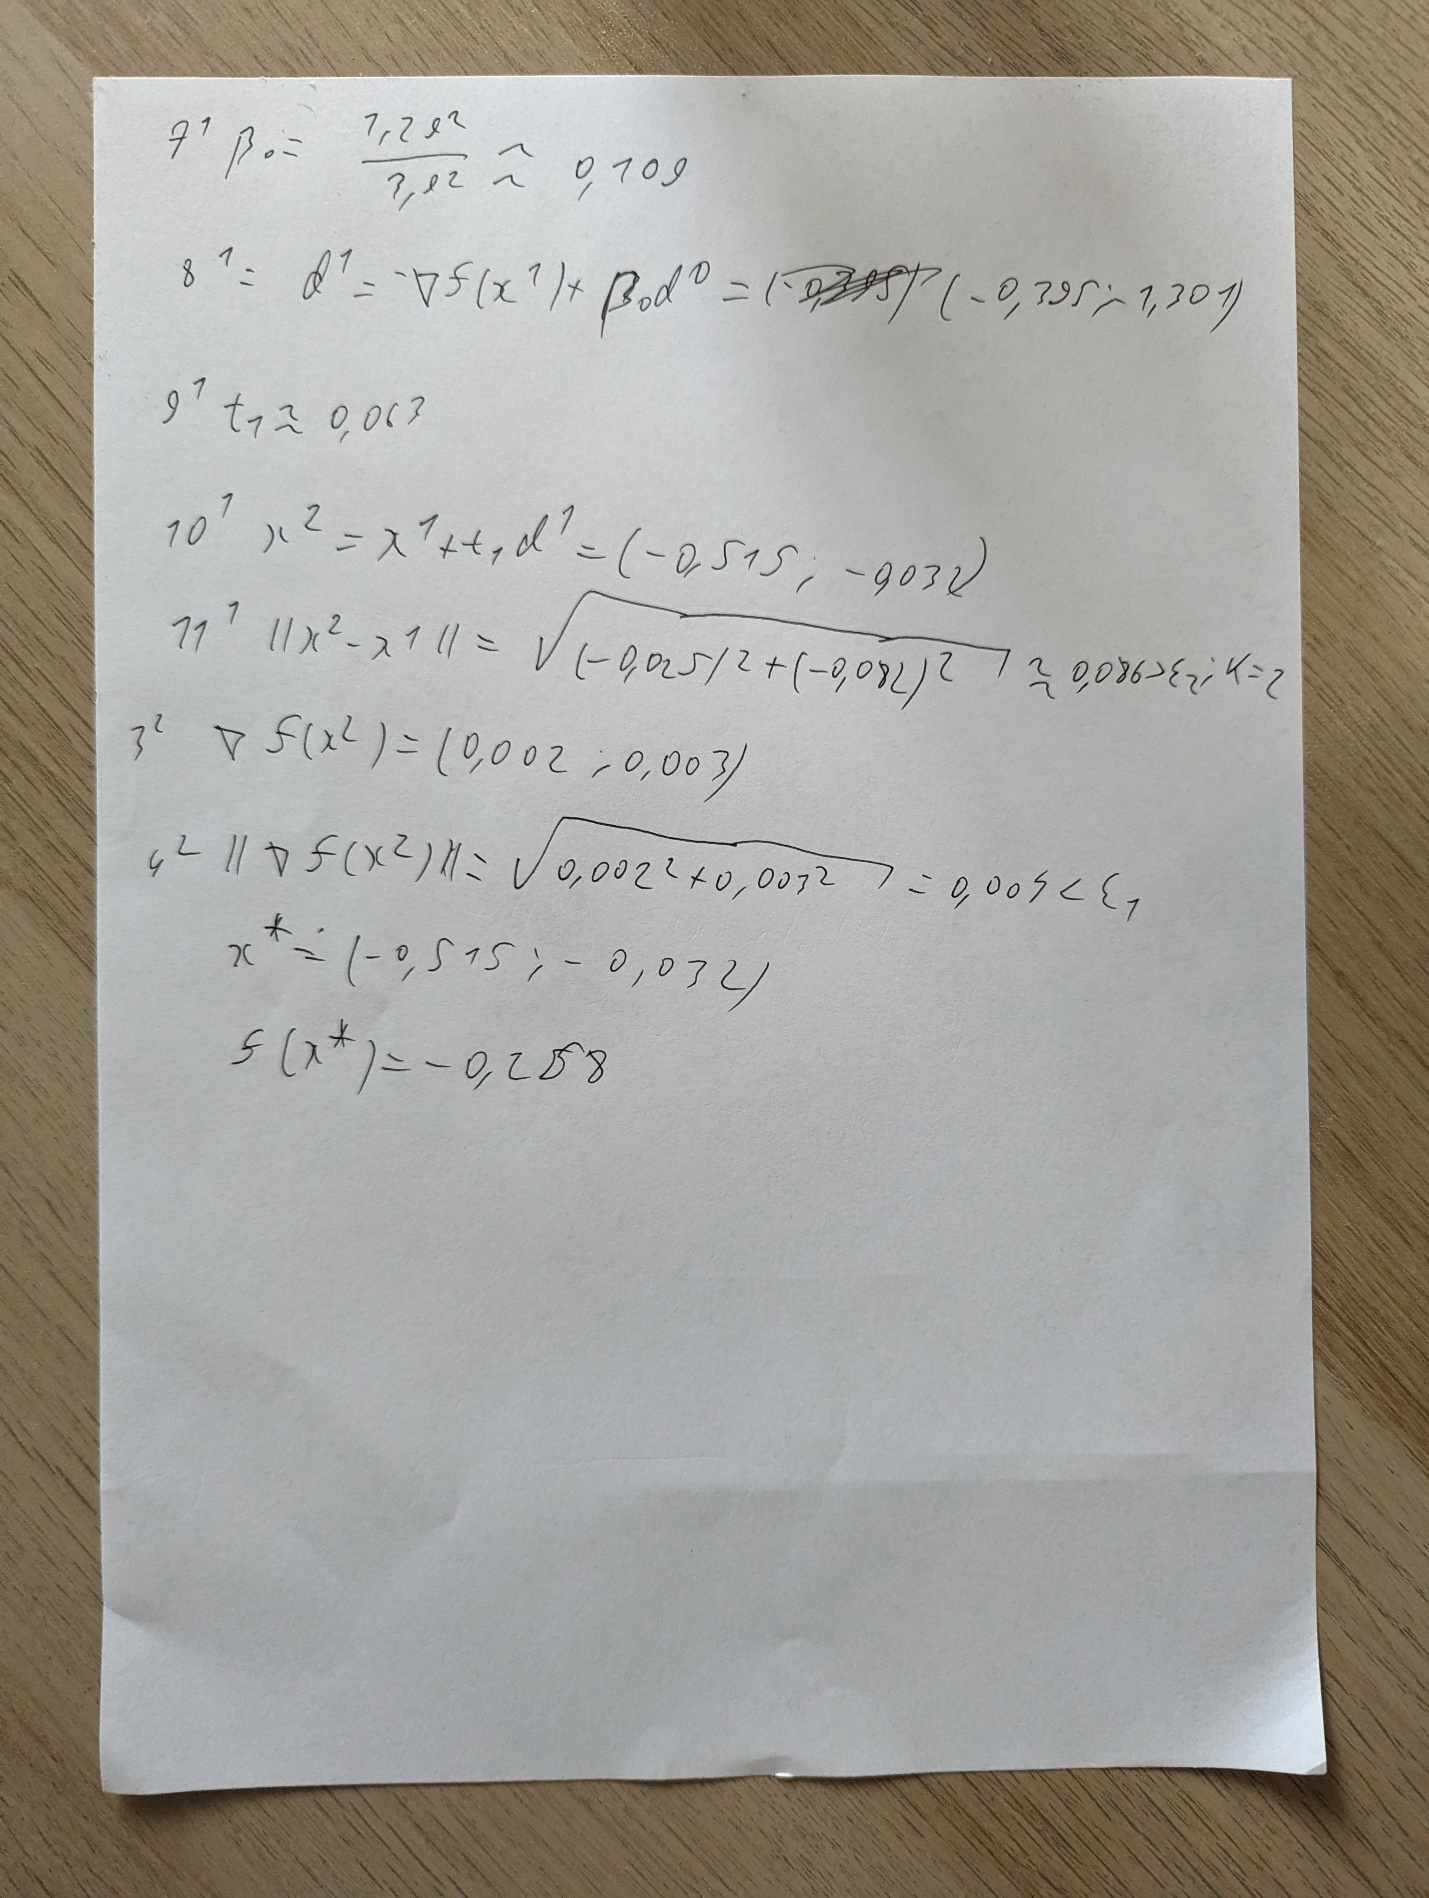 7¹ β₀ = 1,29² / 3,92 ≈ 0,109
8¹ = d¹ = -∇f(x¹) + β₀d⁰ = (-0,395; -1,301)
9¹ t₁ ≈ 0,063
10¹ x² = x¹ + t₁d¹ = (-0,515; -0,032)
11¹ ||x² - x¹|| = √(-0,025)² + (-0,082)² ≈ 0,086 > ε₂; K=2
3² ∇f(x²) = (0,002; 0,003)
4² ||∇f(x²)|| = √0,002² + 0,003² = 0,004 < ε₁
x* = (-0,515; -0,032)
f(x*) = -0,258